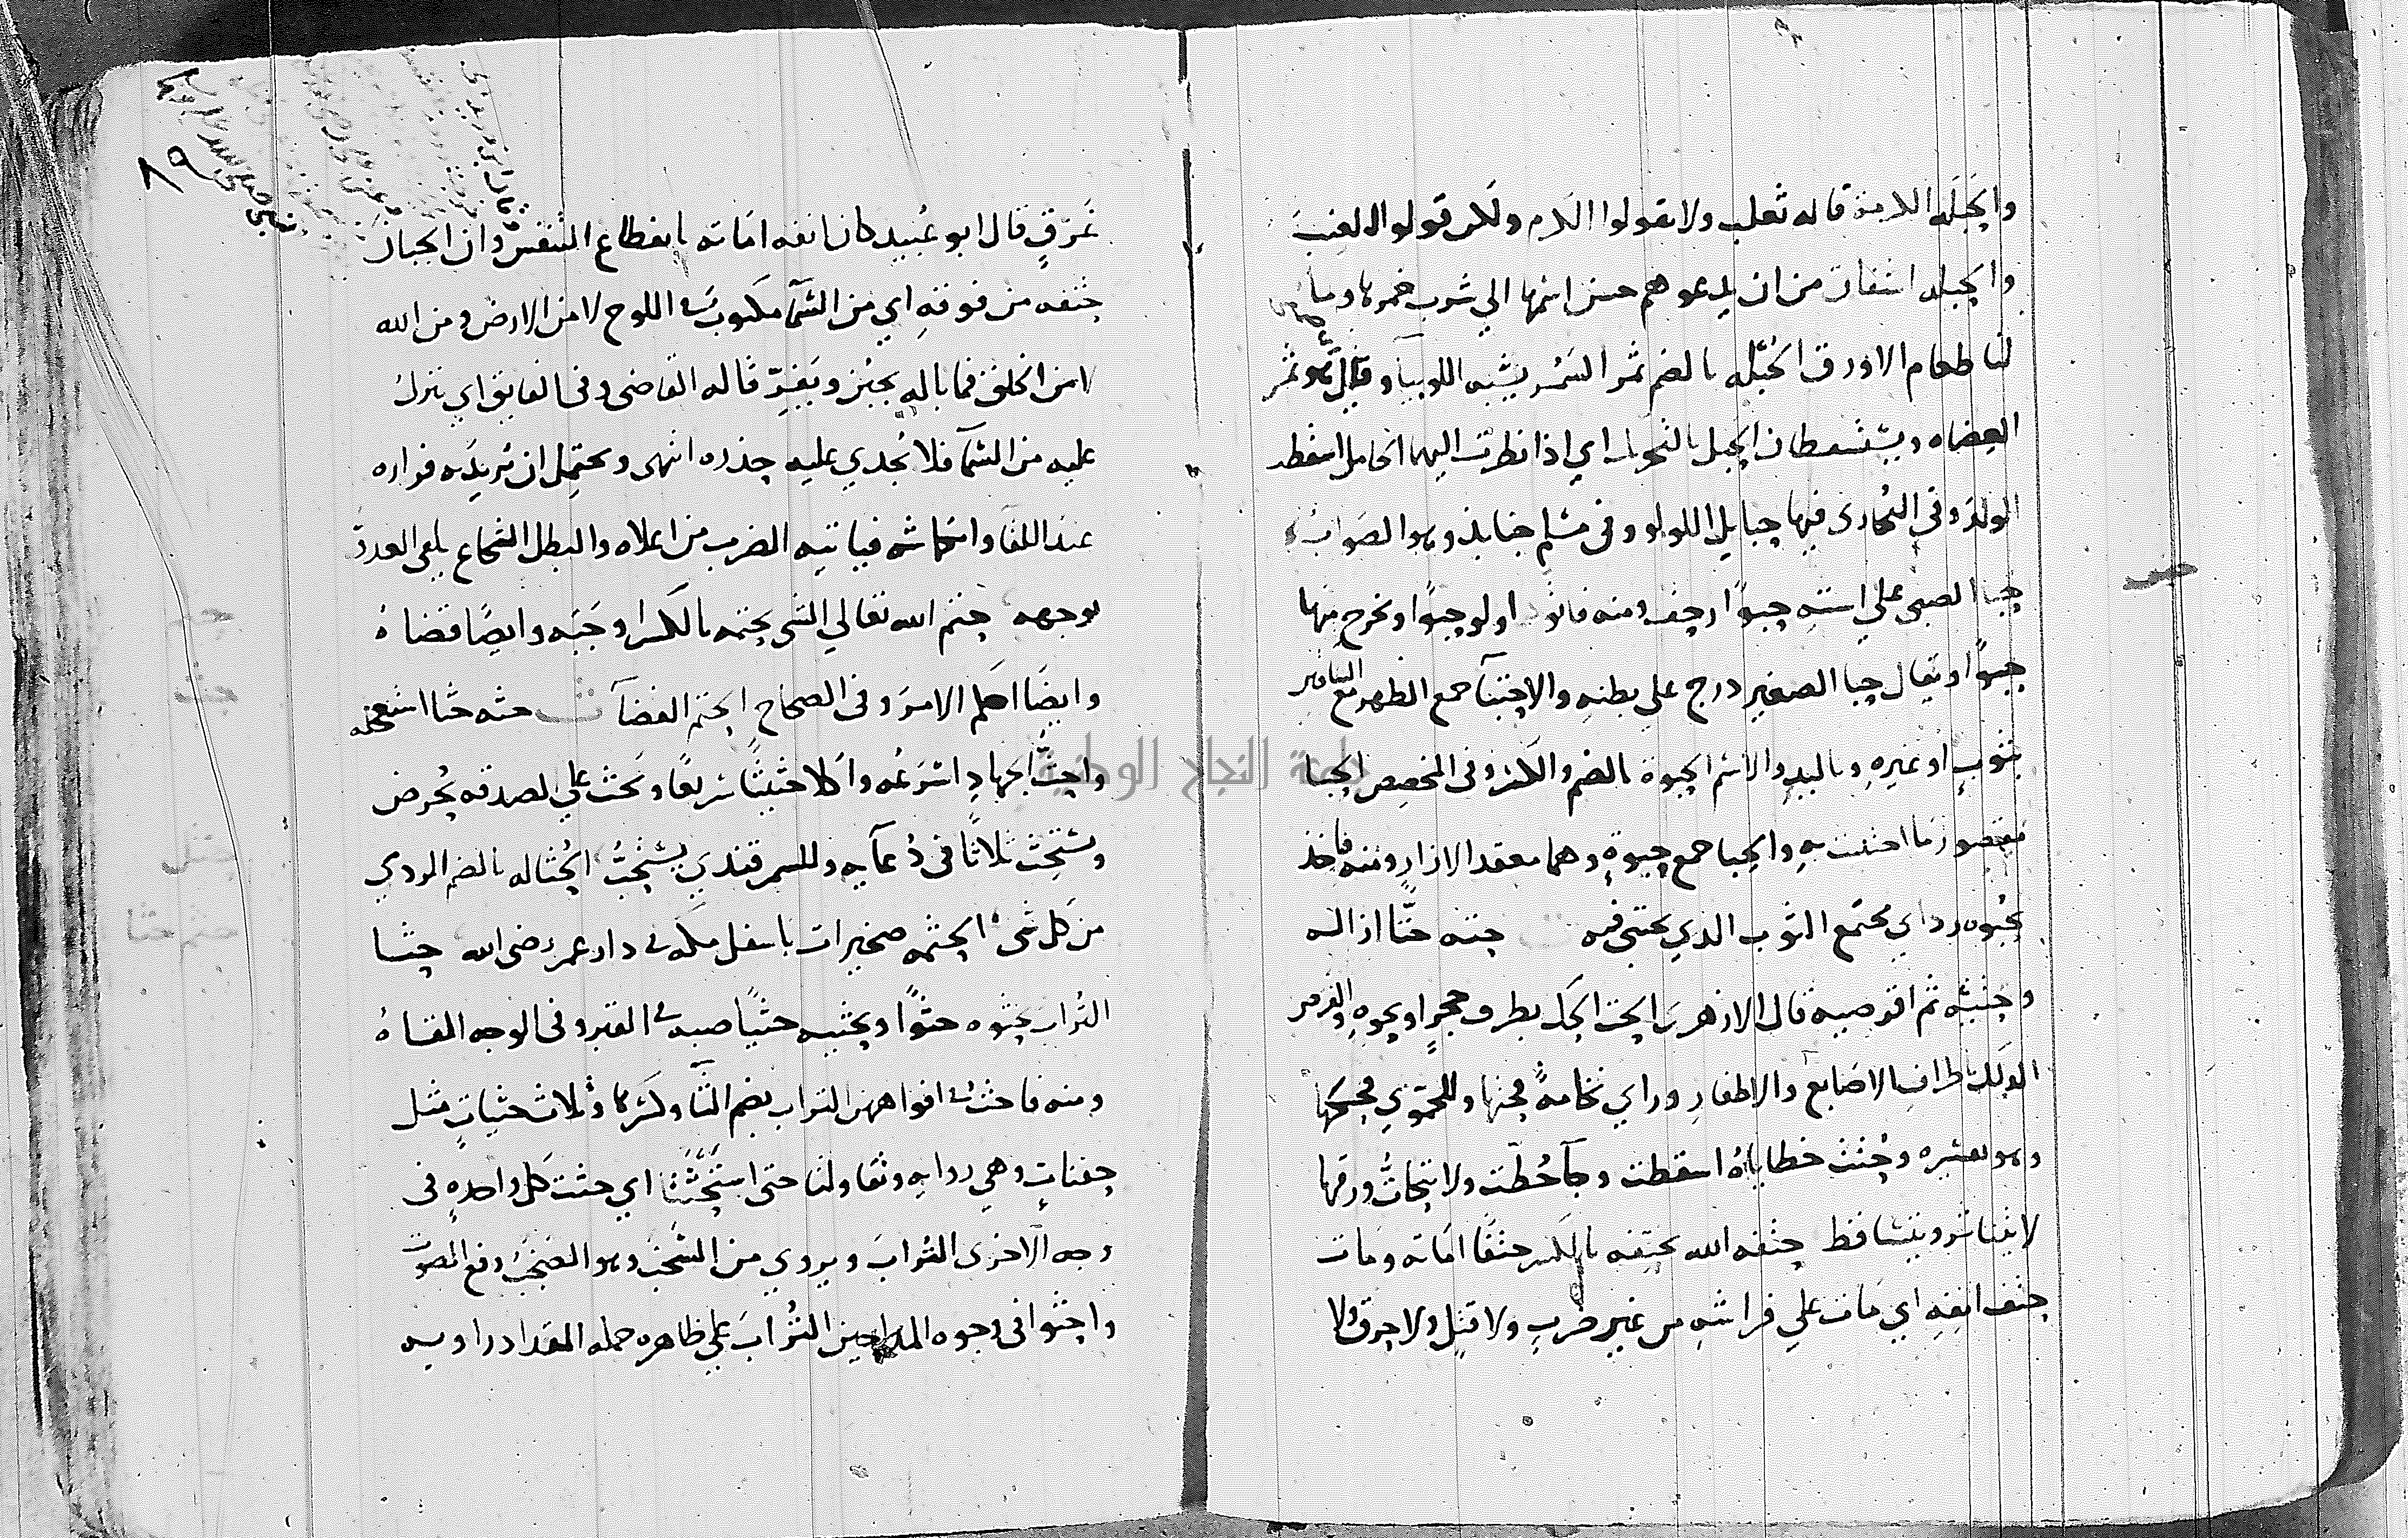 والحبلة اللامنة قاله ثعلب ولا تقولوا الكرم ولكن قولوا العنب
والحبلة اشفاق من ان يدعوهم حسن اسمها الي شرب خمرها وما
لنا طعام الا ورق الحبلة بالضم ثمر السمر يشبه اللوبيا وقيل هو ثمر
العضاه ويستسقطان الحبل بالتحريك اي اذا نظرت اليهما الحامل اسقطت
الولد وفي البخاري فيها حبايل اللولو وفي مسلم جنابذ وهو الصواب
حبا الصبي علي استه حبوًا زحف ومنه فاتوا ولو حبوًا ويخرج منها
حبوًا ويقال حبا الصغير درج علي بطنه والاحتبآ جمع الظهر مع الساقين
بثوبٍ او غيره وباليد والاسم الحبوة بالضم والكسر وفي المخصص الحبا
مقصور ما احتبيت به والحبا جمع حبوةٍ وهما معقد الازار ومنه فاخذ
بحبوة رداي مجتمع الثوب الذي يحتبي فيه ت حته حتًّا ازاله
وحتيه ثم اقرصيه قال الازهري الحت الحك بطرف حجرٍ او نحوه والقرص
الدلك باطراف الاصابع والاظفار وراي نخامةً فحتها وللحموي فحكها
وهو يفسره وحُتت خطاياهُ اسقطت وجآ حُطّت ولا يتحاتُّ ورقها
لا يتناثر ويتساقط حتفه الله يحتِفه بالكسر حتفًا اماته ومات
حتف انفهِ اي مات علي فراشهِ من غير ضربٍ ولا قتلٍ ولا حرقٍ ولا
٨٩
غَرَقٍ قال ابو عُبيد كان انفه اماته بانقطاع التنفس وان الجبان
حتفه من فوقهِ اي من السمآ مكتوب في اللوح لا من الارض ومن الله
لا من الخلق فما باله يجبُن ويَفِرّ قاله القاضي وفي الفايق اي ينزل
عليه من السمآ فلا يُجدي عليه حذره انتهى ويحتمل ان يُريد به فراره
عند اللقا وانكماشه فياتيه الضرب من اعلاه والبطل الشجاع يلقي العدوّ
بوجهه حتم الله تعالي الشي يحتمه بالكسر اوجَبَه وايضًا قضاهُ
وايضًا احكم الامر وفي الصحاح الحتم القضآ ث حثه حثا استعجله
واحثّ الجهاد اسرَعُه واكلا حثيثًا سريعًا ويحث علي الصدقه يُحرض
ويستحِث ثلاثًا في دُعآيه وللسمرقندي يستحبُّ الحُثاله بالضم الردي
من كل شيء الحثمه صخيرات باسفل مكه في دار عمر رضي الله حثا
التراب يحثوه حثوًا ويحثيه حثيًا صبه في القبر وفي الوجه القاهُ
ومنه فاحث في افواههن التراب بضم الثآ وكسرها وثلاث حثياتٍ مثل
حفناتٍ وهي روايه وتقاولتا حتى استَحَثَتَا اي حثت كل واحدهٍ في
وجه الاخرى التراب ويروي من السَّخب وهو الصخبُ رفع الصوت
واحثوا في وجوه المداحين التُرابَ علي ظاهره حمله المقداد راويه